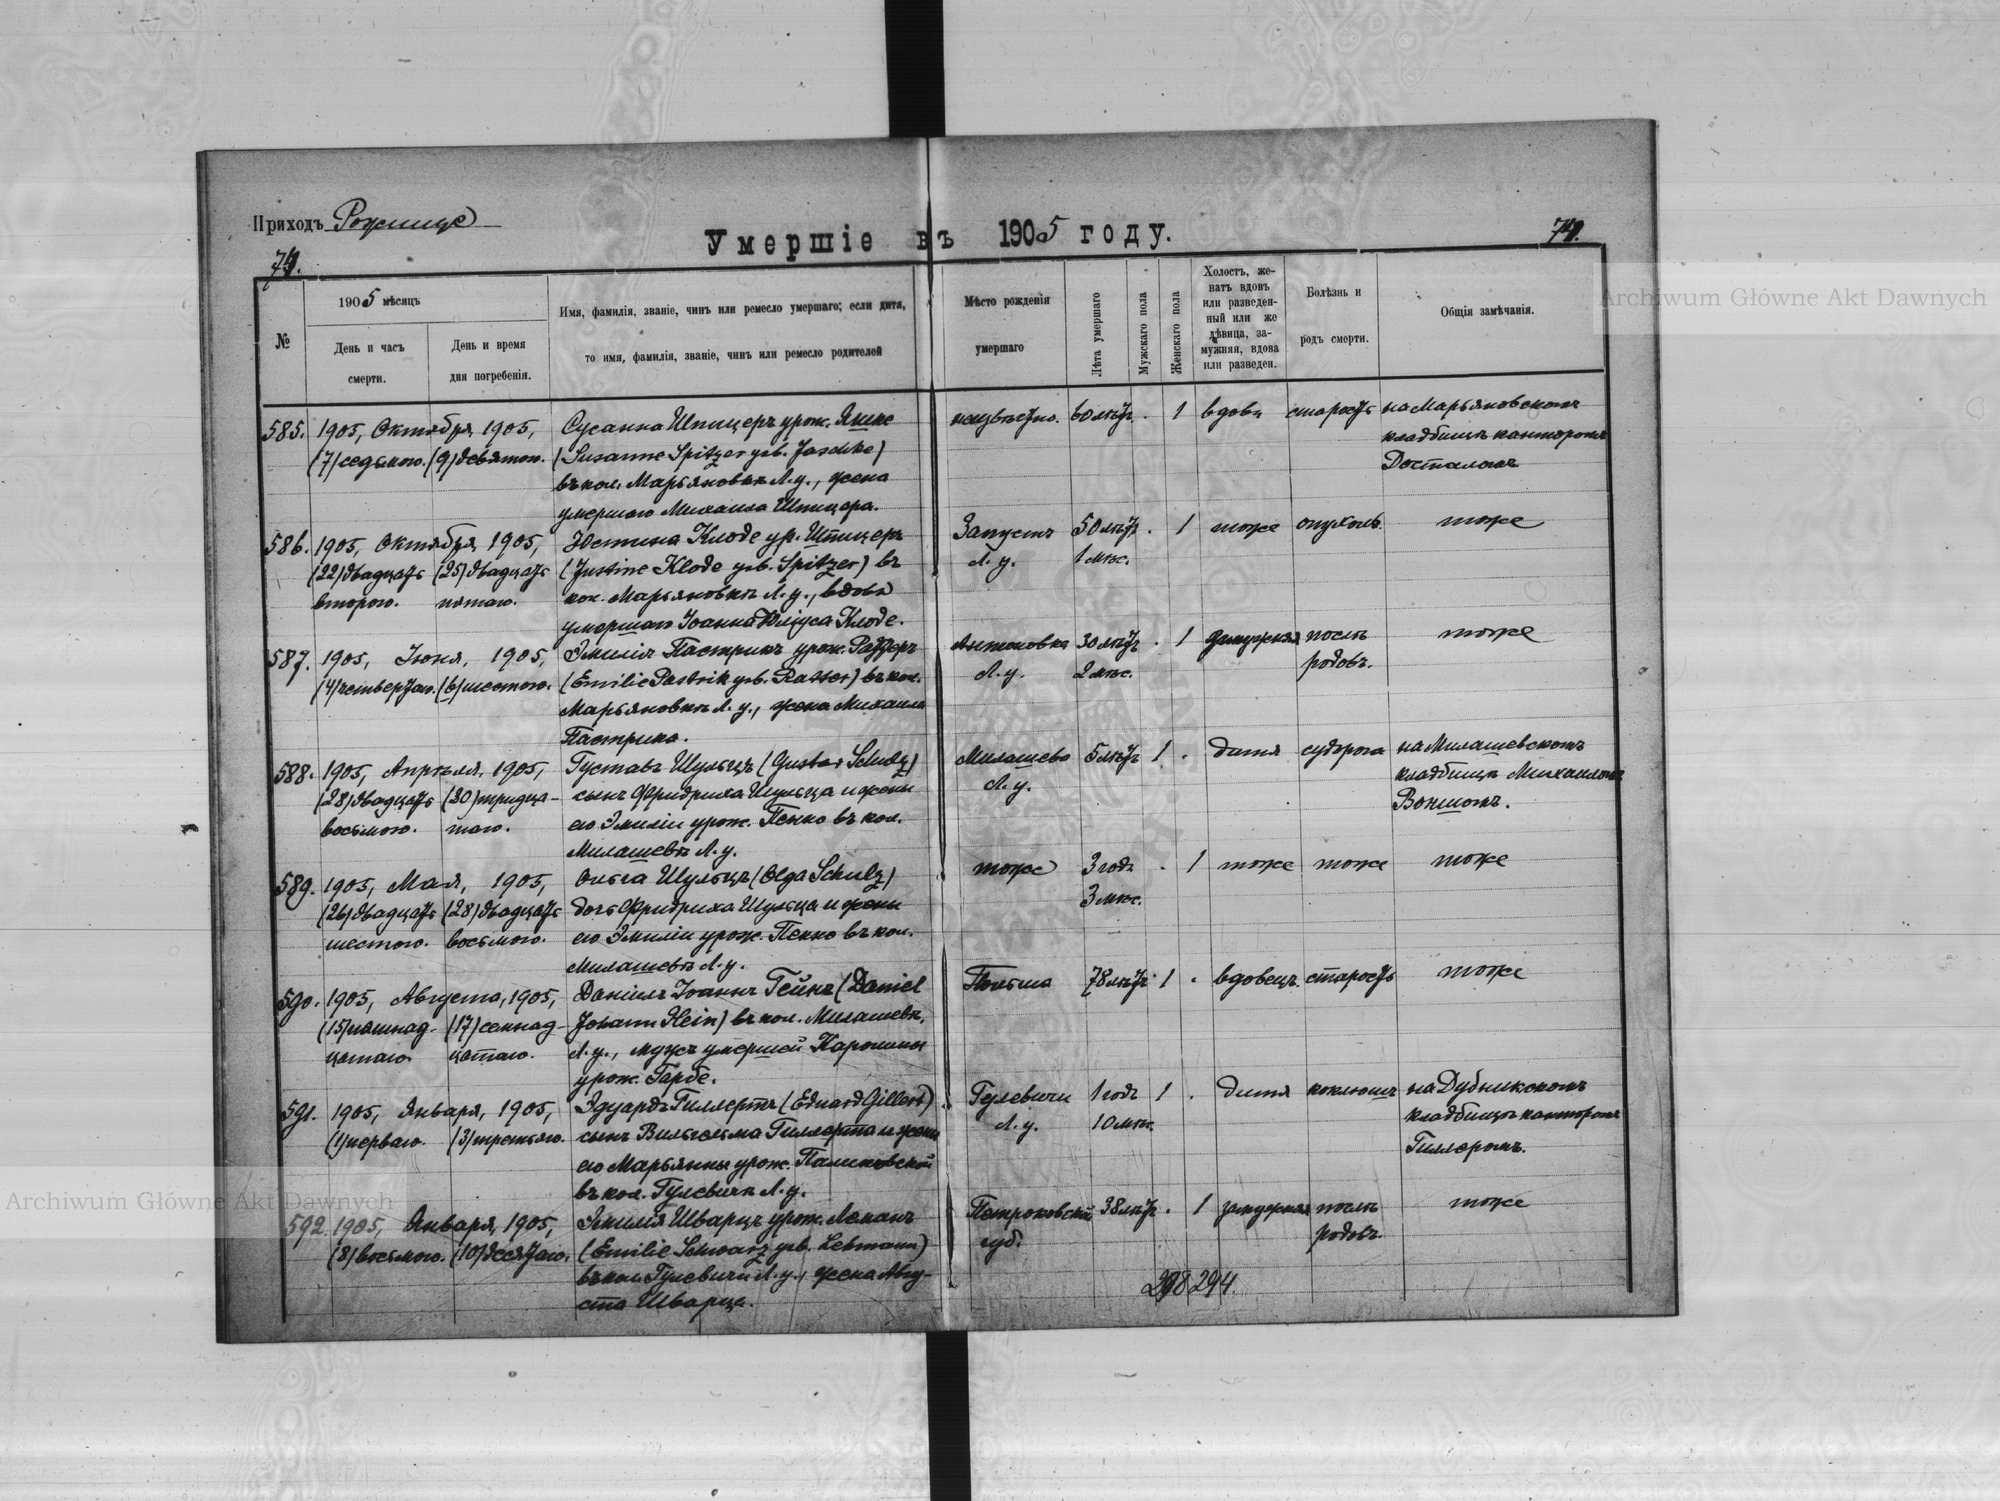 Приходъ Рожище
Умершіе въ 1905 году.
74.
74.
№
1905 мѣсяцъ
День и часъ смерти.
День и время дня погребенія.
Имя, фамилія, званіе, чинъ или ремесло умершаго; если дитя,
то имя, фамилія, званіе, чинъ или ремесло родителей
Мѣсто рожденія
умершаго
Лѣта умершаго
Мужскаго пола
Женскаго пола
Холостъ, же-
натъ вдовъ
или разведен-
ный или же
дѣвица, за-
мужняя, вдова
или разведен.
Болѣзнь и
родъ смерти.
Общія замѣчанія.
585. 1905, Октября, 1905, Сусанна Шпицеръ урож. неизвѣстно. 60 лѣтъ . 1 вдова старость на Марьяновскомъ
(7) седьмого. (9) девятого. (Susanne Spitzer geb. Jaschke) кладбищѣ канторомъ
въ кол. Марьяновкѣ Л. у., жена Досталомъ
умершаго Михаила Шпицера.
586. 1905, Октября, 1905, Юстина Клоде ур. Шпицеръ Запустъ 50 лѣтъ . 1 тоже опухоль. тоже
(22) двадцать (25) двадцать (Justine Klode geb. Spitzer) въ Л. у. 1 мѣс.
второго. пятаго. кол. Марьяновкѣ Л. у., вдова
умершаго Іоанна Юліуса Клоде.
587. 1905, Іюня, 1905, Эмилія Пастрикъ урож. Раттеръ Антоновка 30 лѣтъ . 1 замужняя послѣ тоже
(4) четвертаго. (6) шестого. (Emilie Pastrik geb. Ratter) въ кол. Л. у. 2 мѣс. родовъ.
Марьяновкѣ Л. у., жена Михаила
Пастрика.
588. 1905, Апрѣля, 1905, Густавъ Шульцъ (Gustav Schulz) Милашево 5 лѣтъ 1 . дитя судорога на Милашевскомъ
(28) двадцать (30) тридца- сынъ Фридриха Шульца и жены Л. у. кладбищѣ Михаиломъ
восьмого. таго. его Эмиліи урож. Пенно въ кол.
Милашевѣ Л. у.
589. 1905, Мая, 1905, Ольга Шульцъ (Olga Schulz) тоже 3 года . 1 тоже тоже тоже
(26) двадцать (28) двадцать дочь Фридриха Шульца и жены 3 мѣс.
шестого. восьмого. его Эмиліи урож. Пенно въ кол.
Милашевѣ Л. у.
590. 1905, Августа, 1905, Даніилъ Іоаннъ Гейнъ (Daniel Польша 78 лѣтъ 1 . вдовецъ старость тоже
(15) пятнад- (17) семнад- Johann Hein) въ кол. Милашевѣ,
цатаго. цатаго. Л. у., мужъ умершей Каролины
урож. Гарбе.
591. 1905, Января, 1905, Эдуардъ Гиллертъ (Eduard Gillert) Гулевичи 1 годъ 1 . дитя коклюшъ на Дубникскомъ
(1) перваго. (3) третьяго. сынъ Вильгельма Гиллерта и жены Л. у. 10 мѣс. кладбищѣ канторомъ
его Марьянны урож. Палиновской
въ кол. Гулевичѣ Л. у.
592. 1905, Января, 1905, Эмилія Шварцъ урож. Леманъ Петроковской 38 лѣтъ . 1 замужняя послѣ тоже
(8) восьмого. (10) десятаго. (Emilie Schwarz geb. Lehmann) губ. родовъ.
въ кол. Гулевичи Л. у., жена Авгу-
ста Шварца.
298 294.
Archiwum Główne Akt Dawnych
Archiwum Główne Akt Dawnych